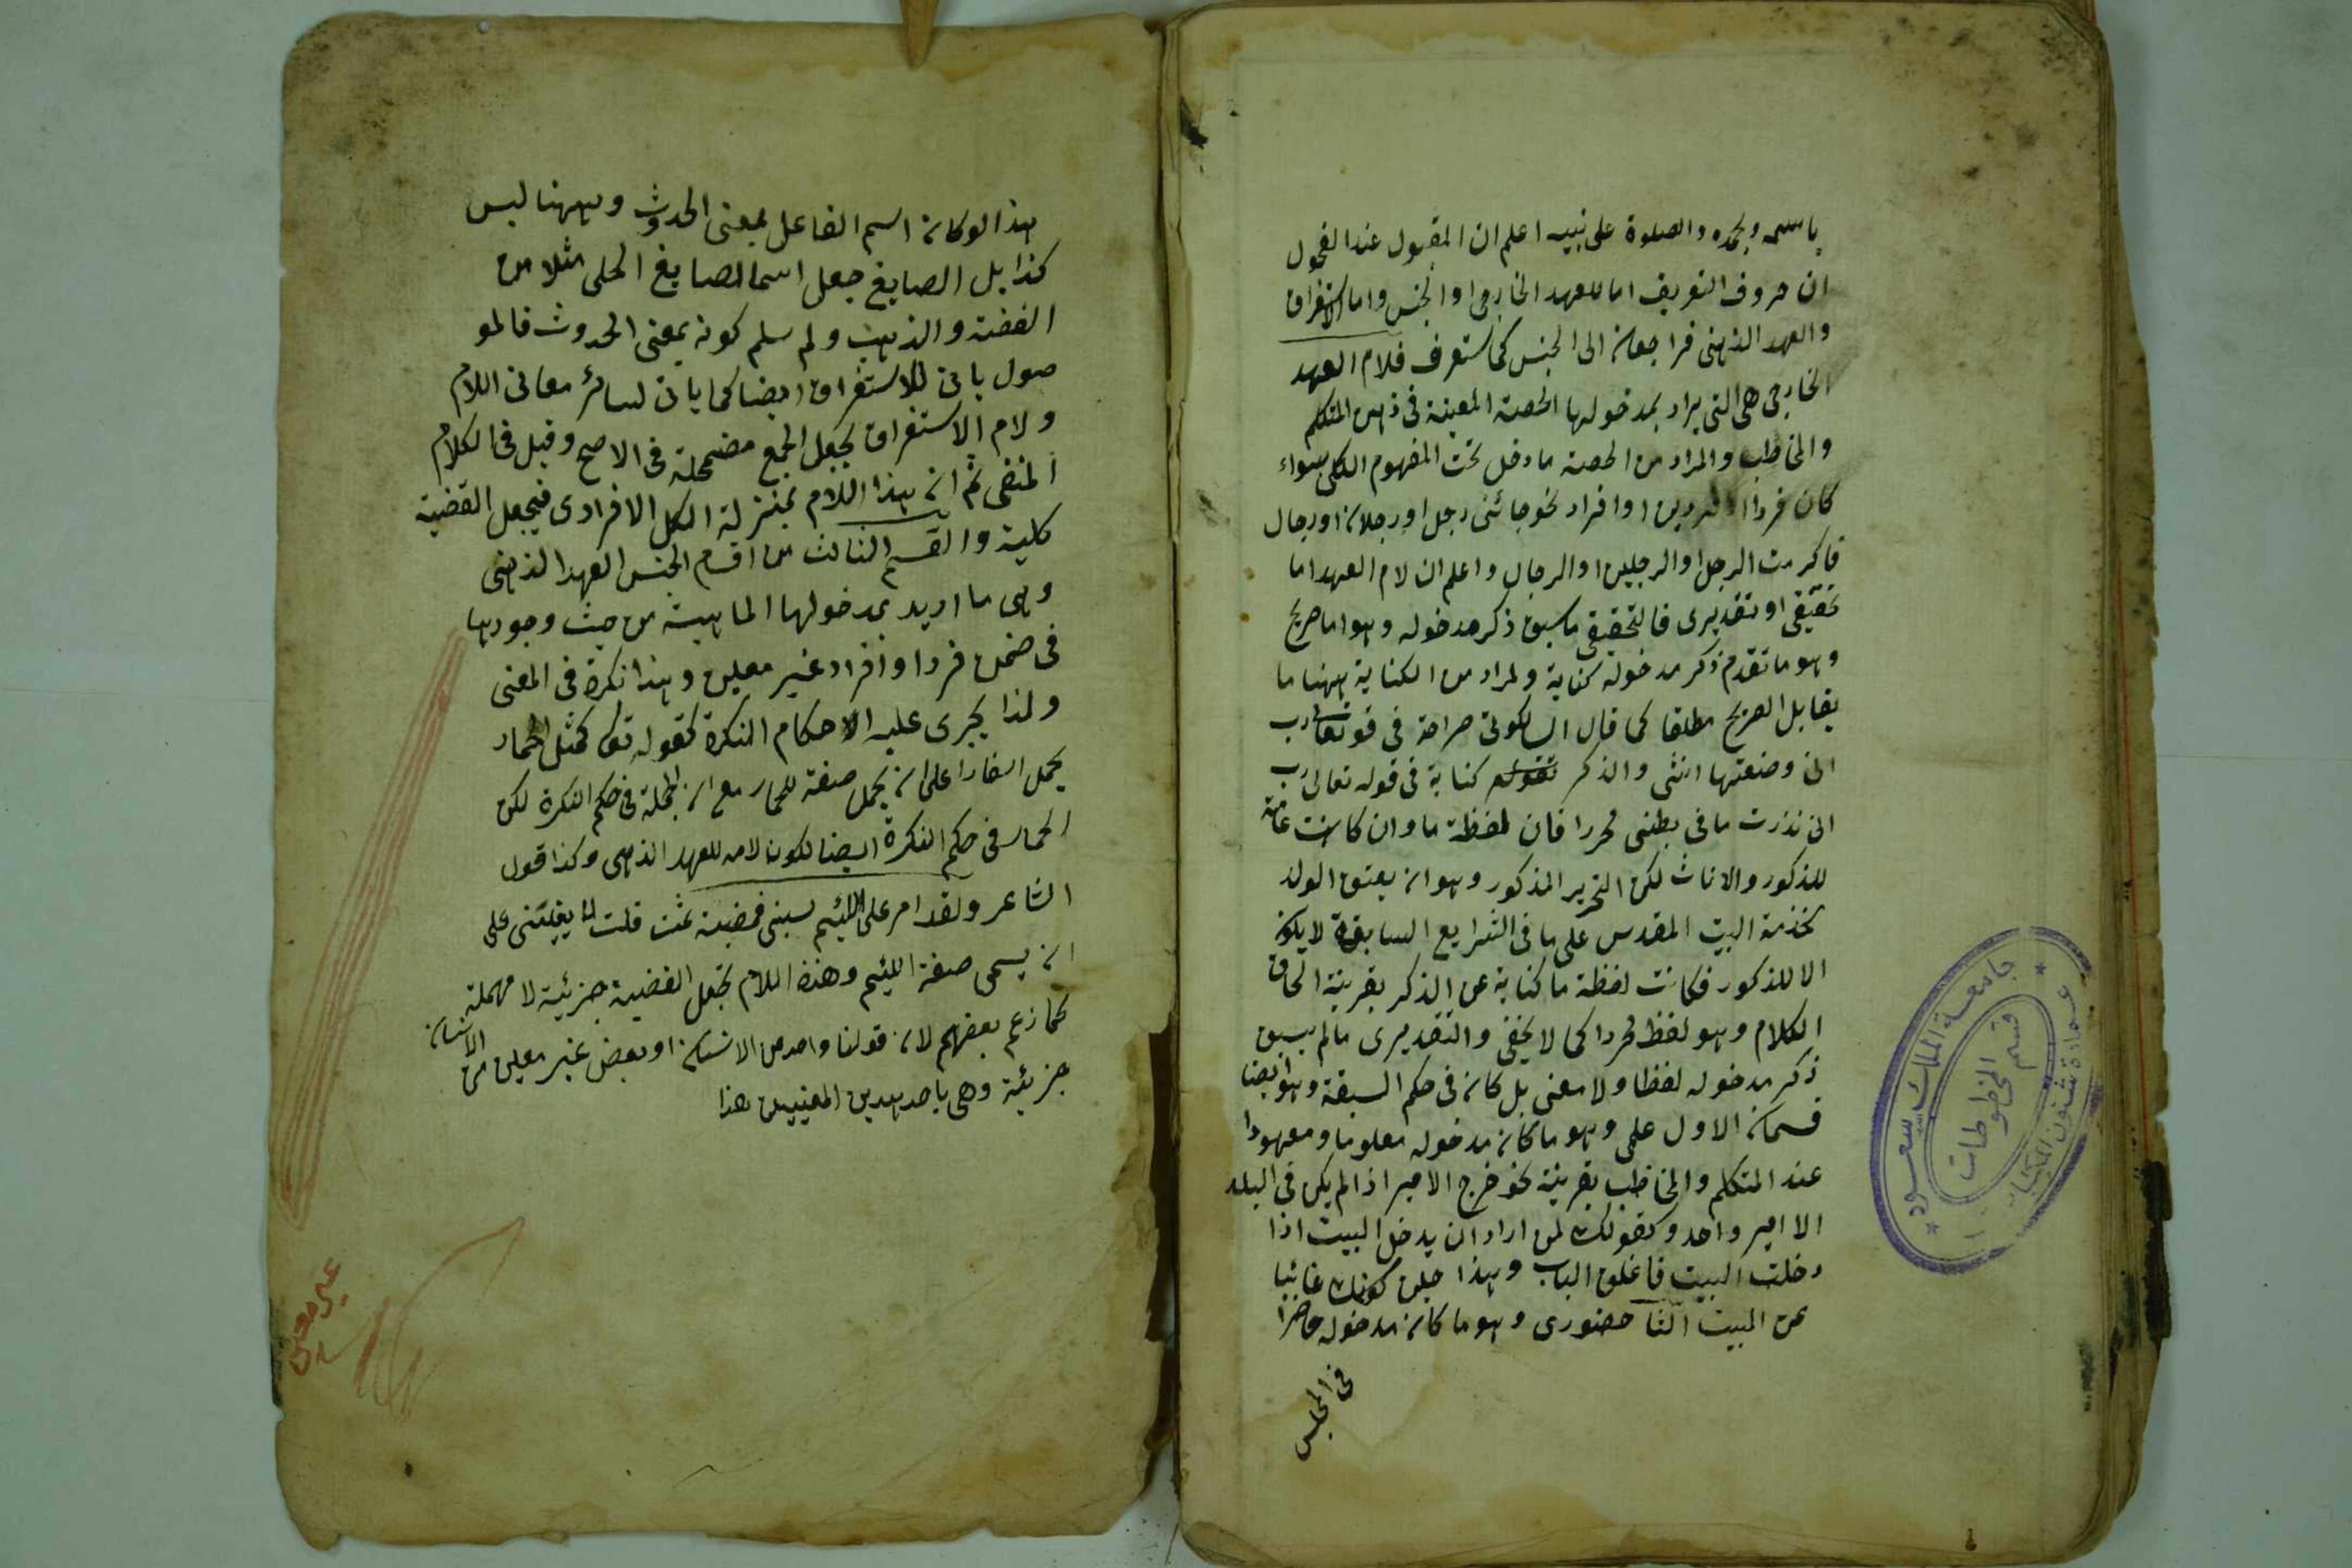 باسمه وبحمده والصلوة على نبيه اعلم ان المقبول عند الفحول
ان حروف التعريف اما للعهد الخارجى او الجنس واما الاستغراق
والعهد الذهنى فراجعان الى الجنس كما ستعرف فلام العهد
الخارجى هى التى يراد بمدخولها الحصة المعينة فى ذهن المتكلم
والمخاطب والمراد من الحصة ما دخل تحت المفهوم الكلى سواء
كان فردا او فردين او افراد نحو جائنى رجل او رجلان او رجال
فاكرمت الرجل او الرجلين او الرجال واعلم ان لام العهد اما
تحقيقى او تقديرى فالتحقيقى ما سبق ذكر مدخوله وهو اما صريح
وهو ما تقدم ذكر مدخوله كناية ولمراد من الكناية ههنا ما
يقابل الصريح مطلقا كما قال السالكوتى صراحة فى قو تعالى رب
انى وضعتها انثى والذكر كناية فى قوله تعالى رب
انى نذرت ما فى بطنى محررا فان لفظة ما وان كانت عامة
للذكور والاناث لكن التحرير المذكور وهو ان يعتق الولد
لخذمة البيت المقدس على ما فى الشرايع السابقة لا يكون
الا للذكور فكانت لفظة ما كناية عن الذكر بقرينة الحاق
الكلام وهو لفظ محردا كما لا يخفى والتقديرى ما لم يسبق
ذكر مدخوله لفظا ولا معنى بل كان فى حكم السبقة وهو ايضا
قسمان الاول علمى وهو ما كان مدخوله معلوما ومعهودا
عند المتكلم والمخاطب بقرينة نحو خرج الامير اذا لم يكن فى البلد
الا امير واحد وكقولك لمن اراد ان يدخل البيت اذا
دخلت البيت فاغلق الباب وهذا حين كونك غائبا
عن البيت الثا حضورى وهو ما كان مدخوله حاضرا
فى المجلس
جامعة الملك سعود
عمادة شئون المكتبات
قسم المخطوطات
هذا لو كان اسم الفاعل بمعنى الحدوث وههنا ليس
كذا بل الصايغ جعل اسما لصايغ الحلى مثلا من
الفضة والذهب ولم سلم كونه بمعنى الحدوث فالمو
صول ياتى للاستغراق ايضا كما ياتى لسائر معانى اللام
ولام الاستغراق يجعل الجمع مضمحلة فى الاصح وقيل فى الكلام
المنفى ثم ان هذا اللام بمنزلة الكل الافرادى فيجعل القضية
كلية والقسم الثالث من اقسام الجنس العهد الذهنى
وهى ما اريد بمدخولها الماهية من حيث وجودها
فى ضمن فرد او افراد غير معين وهذا نكرة فى المعنى
ولذا يجرى عليه الاحكام النكرة كقوله تعا كمثل الحمار
يحمل اسفارا على ان يحمل صفة للحمار مع ان الجملة فى حكم النكرة لكن
الحمار فى حكم النكرة ايضا لكون لامه للعهد الذهنى وكذا قول
الشاعر ولقد امر على اللئيم يسبنى فمضيت ثمت قلت لا يعنينى على
ان يسمى صفة اللئيم وهذه اللام تجعل القضية جزئية لا مهملة
كما زعم بعضهم لان قولنا واحد من الانسان او بعض غير معين من الانسان
جزئية وهى باحد هدين المعنيين هذا